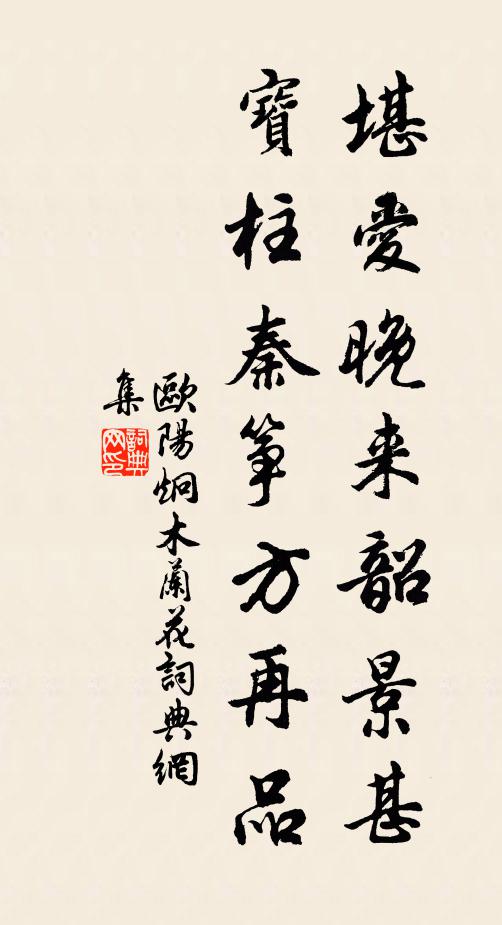 堪愛晚来韶景甚
寶柱秦箏方再品
歐陽炯木蘭花詞典網
集
詞典网印